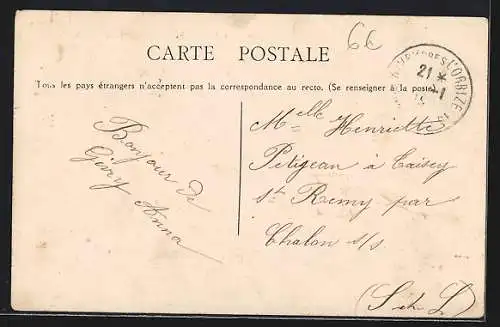 6c
CARTE POSTALE
Tous les pays étrangers n'acceptent pas la correspondance au recto. (Se renseigner à la poste)
21 *
Bonjour de
Givry
Anna
Melle Henriette
Petigean à Taisey
St Remy par
Chalon s/s
(S. et L.)